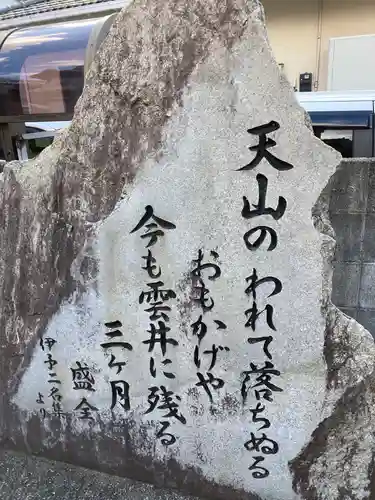 天山の われて落ちぬる
おもかげや
今も雲井に残る
三ヶ月
盛全
伊予二名集
より